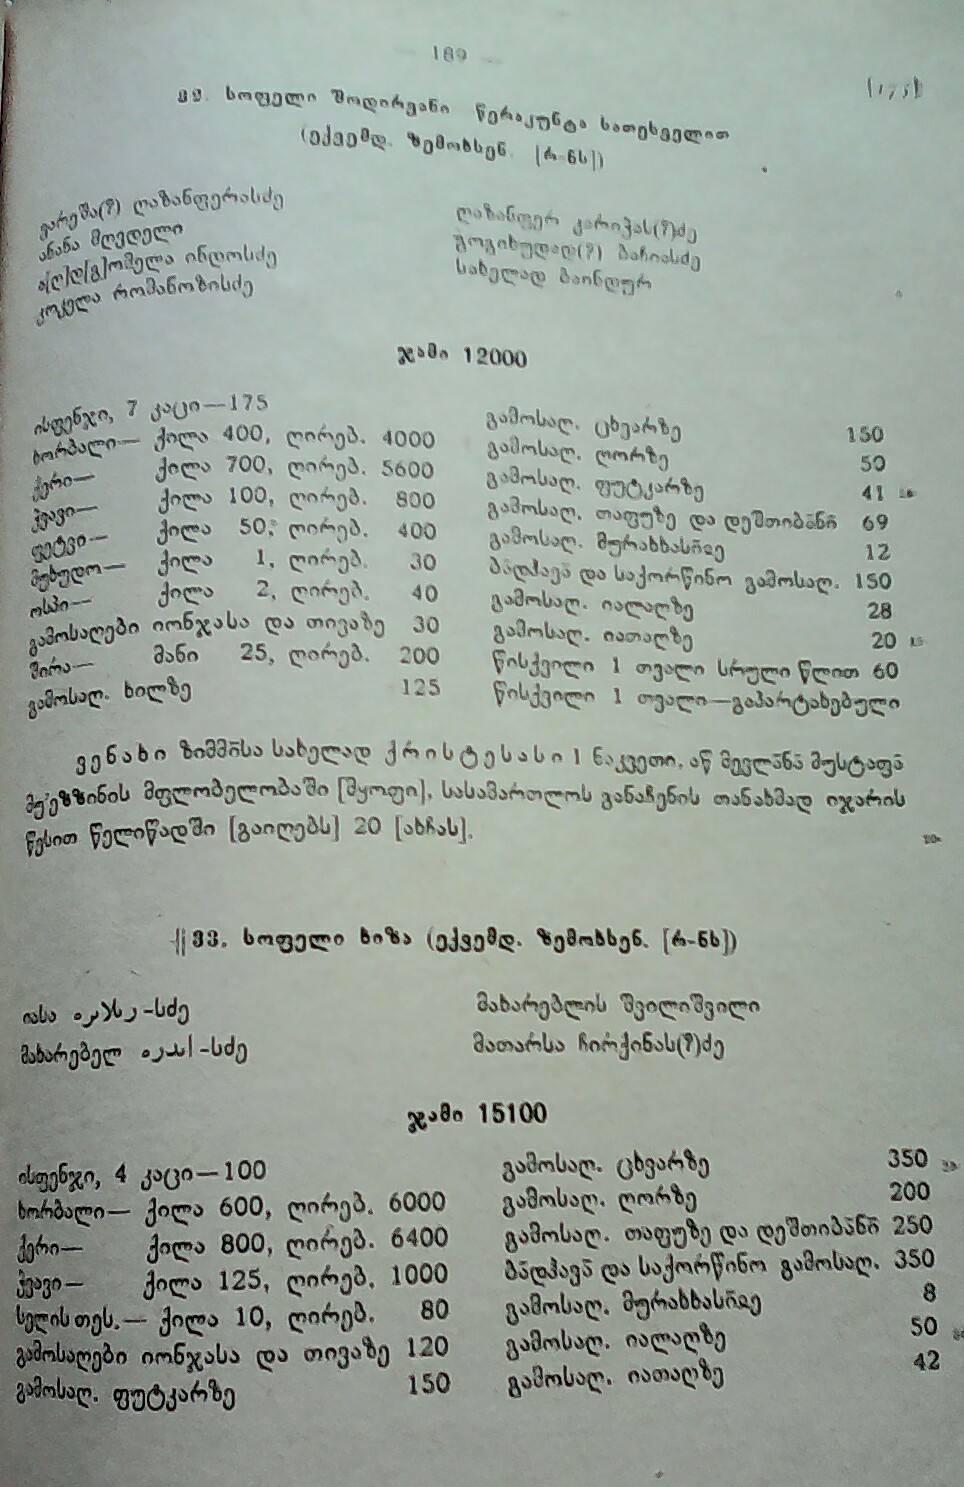 189
[175]
32. სოფელი შოდირვანი წერაკუნტა სათესველით
(ექვემდ. ზემოხსენ. [რ-ნს])
ვარეშა(?) ღაზანფერასძე
ანანა მღვდელი
ა[ღ]დ[გ]ომელა ინდოსძე
კოკელა რომანოზისძე
ღაზანფერ კარიჭას(?)ძე
შოგიხუდად(?) ბაჩიასძე
სახელად ბაინდურ
ჯამი 12000
ისფენჯი, 7 კაცი—175
ხორბალი— ქილა 400, ღირებ. 4000
ქერი— ქილა 700, ღირებ. 5600
ჭვავი— ქილა 100, ღირებ. 800
ფეტვი— ქილა 50, ღირებ. 400
მუხუდო— ქილა 1, ღირებ. 30
ოსპი— ქილა 2, ღირებ. 40
გამოსაღები იონჯასა და თივაზე 30
შირა— მანი 25, ღირებ. 200
გამოსაღ. ხილზე 125
გამოსაღ. ცხვარზე 150
გამოსაღ. ღორზე 50
გამოსაღ. ფუტკარზე 41
გამოსაღ. თაფუზე და დეშთიბანი 69
გამოსაღ. მურახხასიჲე 12
ბადჰავა და საქორწინო გამოსაღ. 150
გამოსაღ. იალაღზე 28
გამოსაღ. იათაღზე 20
წისქვილი 1 თვალი სრული წლით 60
წისქვილი 1 თვალი—გაპარტახებული
ვენახი ზიმმისა სახელად ქრისტესასი 1 ნაკვეთი, აწ მევლანა მუსტაფა
მუ'ეზზინის მფლობელობაში [მყოფი], სასამართლოს განაჩენის თანახმად იჯარის
წესით წელიწადში [გაიღებს] 20 [ახჩას].
33. სოფელი ხიზა (ექვემდ. ზემოხსენ. [რ-ნს])
იასა -სძე
მახარებელ -სძე
მახარებლის შვილიშვილი
მათარსა ჩირქინას(?)ძე
ჯამი 15100
ისფენჯი, 4 კაცი—100
ხორბალი— ქილა 600, ღირებ. 6000
ქერი— ქილა 800, ღირებ. 6400
ჭვავი— ქილა 125, ღირებ. 1000
სელის თეს.— ქილა 10, ღირებ. 80
გამოსაღები იონჯასა და თივაზე 120
გამოსაღ. ფუტკარზე 150
გამოსაღ. ცხვარზე 350
გამოსაღ. ღორზე 200
გამოსაღ. თაფუზე და დეშთიბანი 250
ბადჰავა და საქორწინო გამოსაღ. 350
გამოსაღ. მურახხასიჲე 8
გამოსაღ. იალაღზე 50
გამოსაღ. იათაღზე 42